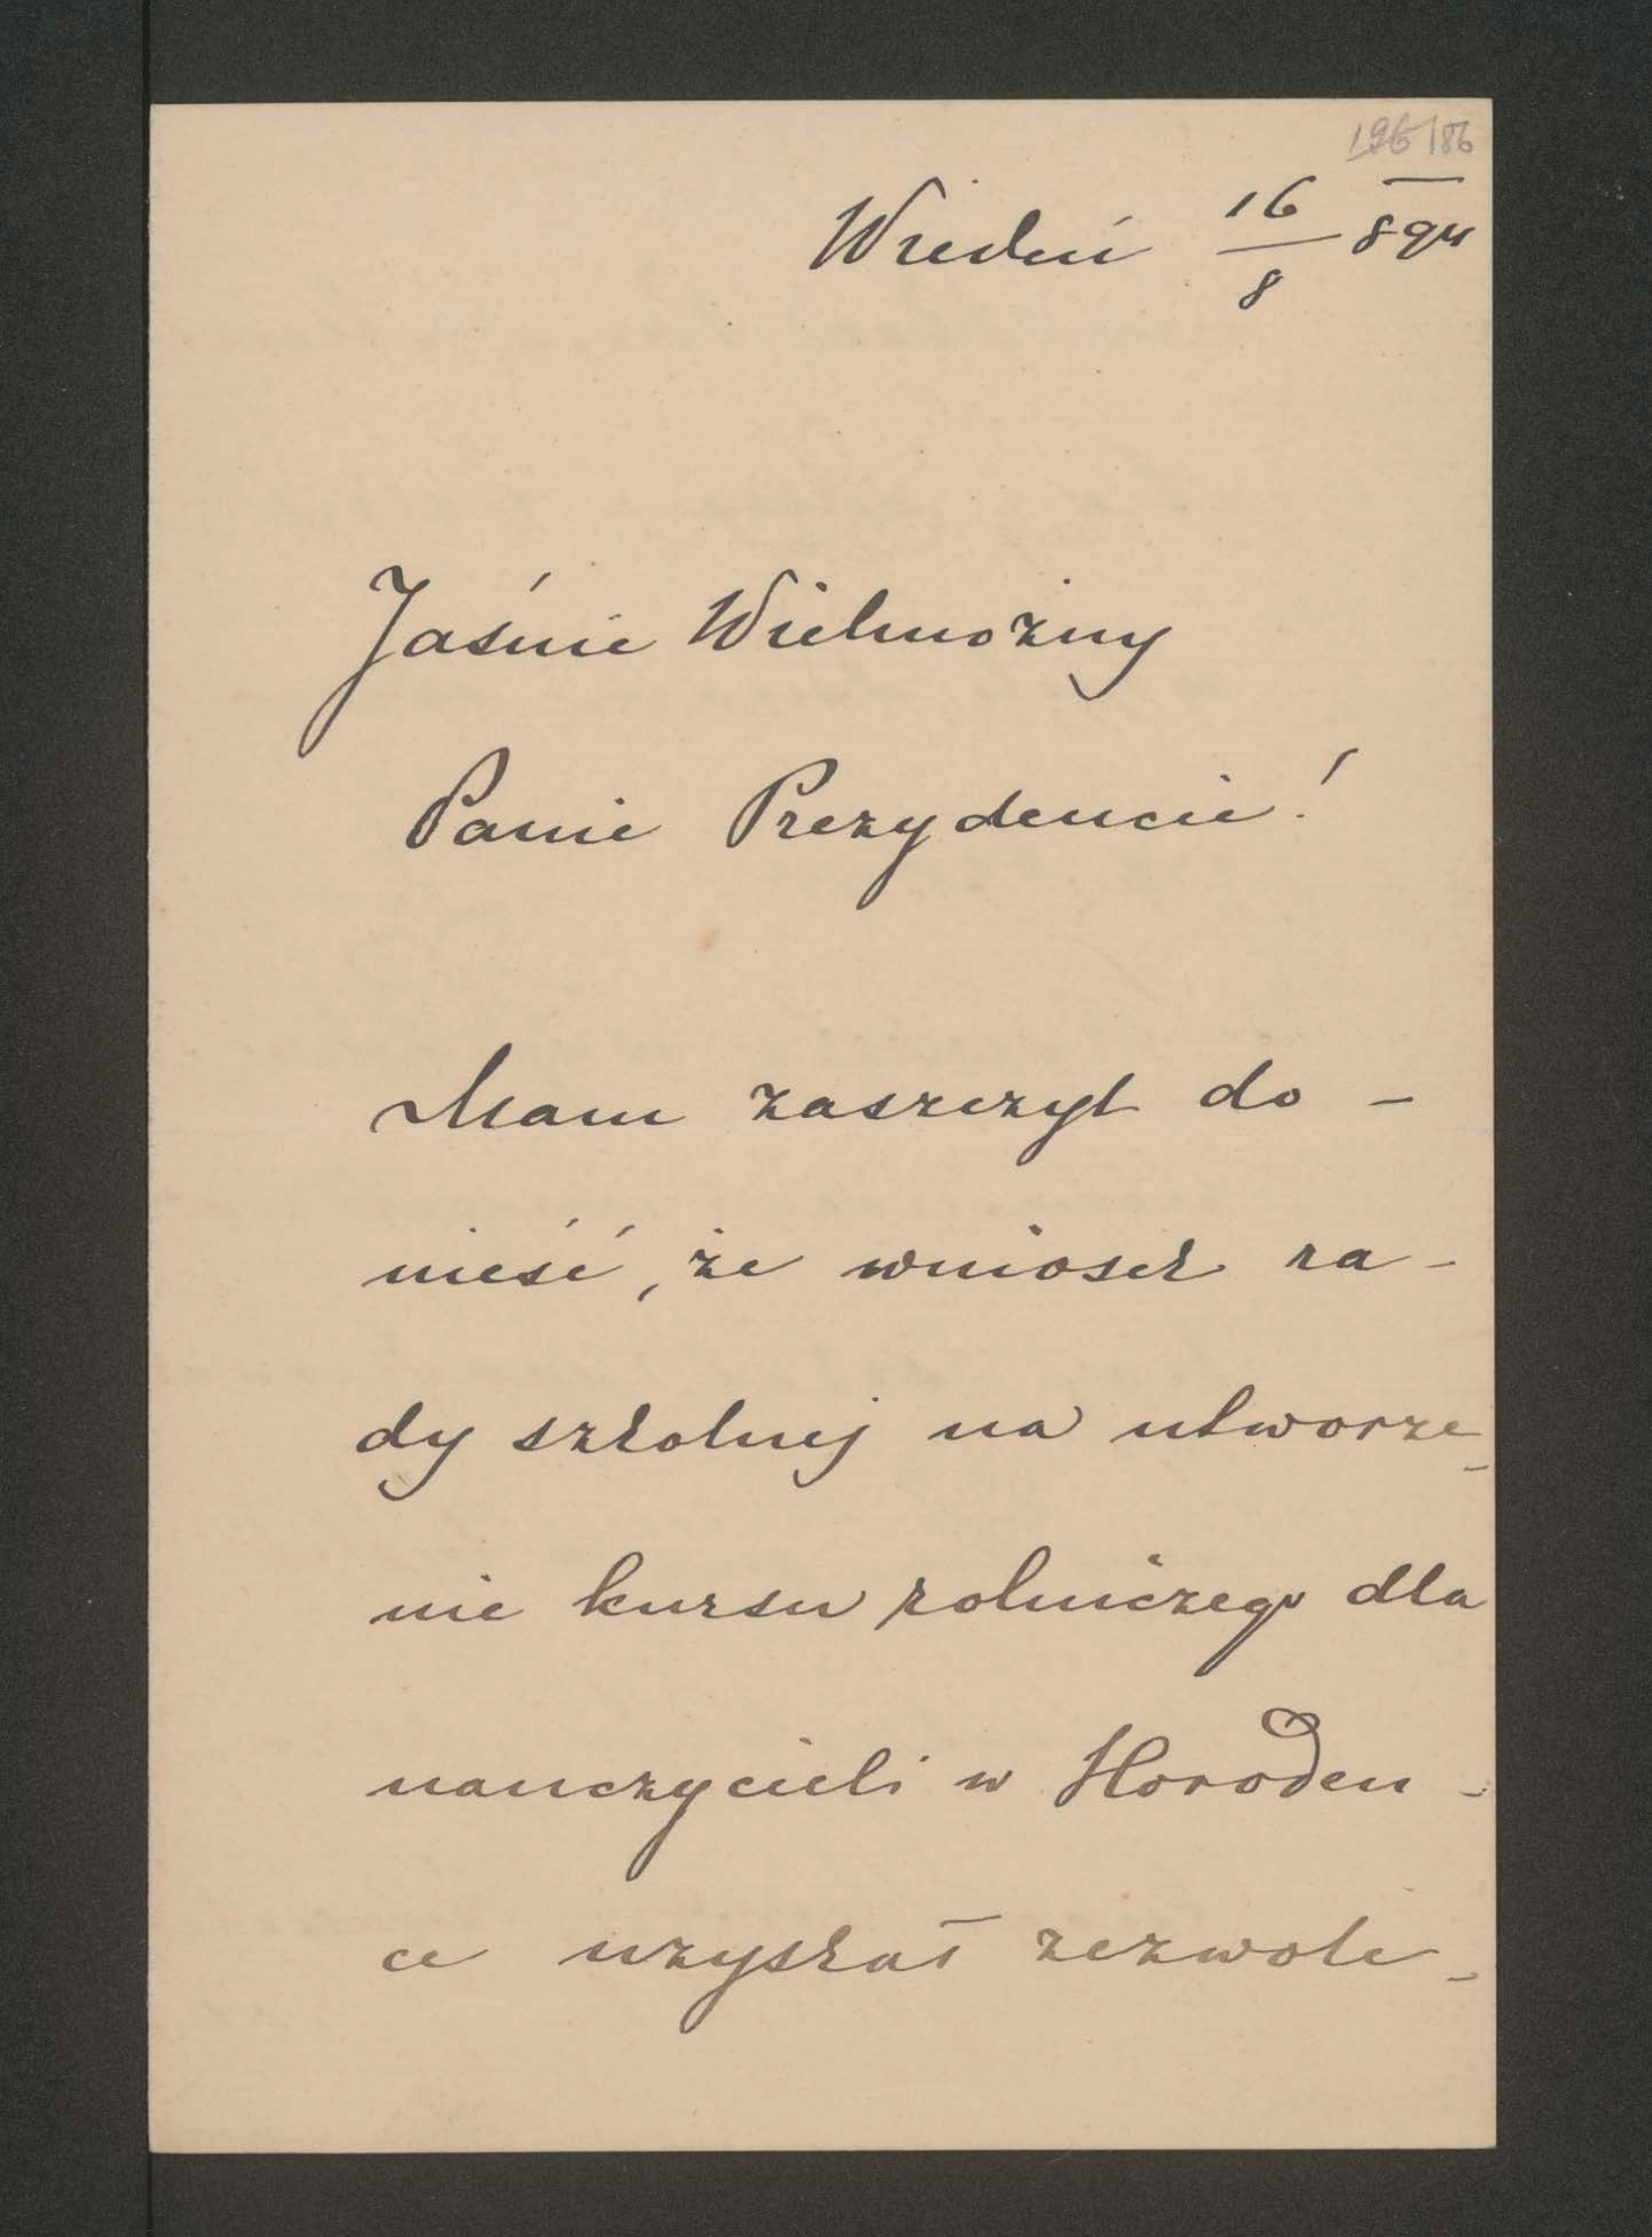 196 186
Wiedeń 16/8 894
Jaśnie Wielmożny
Panie Prezydencie!
Mam zaszczyt do-
nieść, że wniosek ra-
dy szkolnej na utworze-
nie kursu rolniczego dla
nauczycieli w Horoden-
ce uzyskał zezwole-